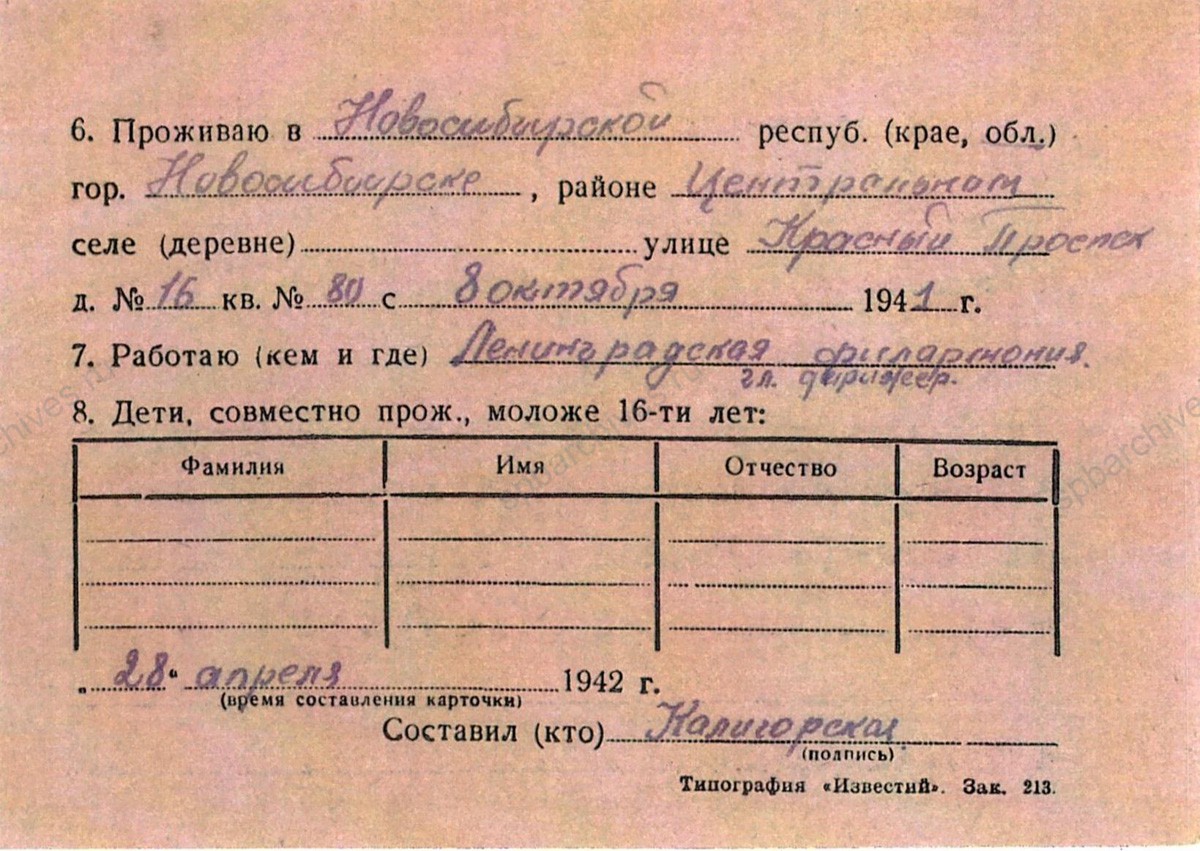 6. Проживаю в Новосибирской респуб. (крае, обл.)
гор. Новосибирске, районе Центральном
селе (деревне) улице Красный Проспек
д. № 16 кв. № 80 с 8 октября 1941 г.
7. Работаю (кем и где) Ленинградская филармония.
гл. дирижер.
8. Дети, совместно прож., моложе 16-ти лет:
Фамилия Имя Отчество Возраст
„28“ апреля 1942 г.
(время составления карточки)
Составил (кто) Калигорская
(подпись)
Типография «Известий». Зак. 213.
spbarchives